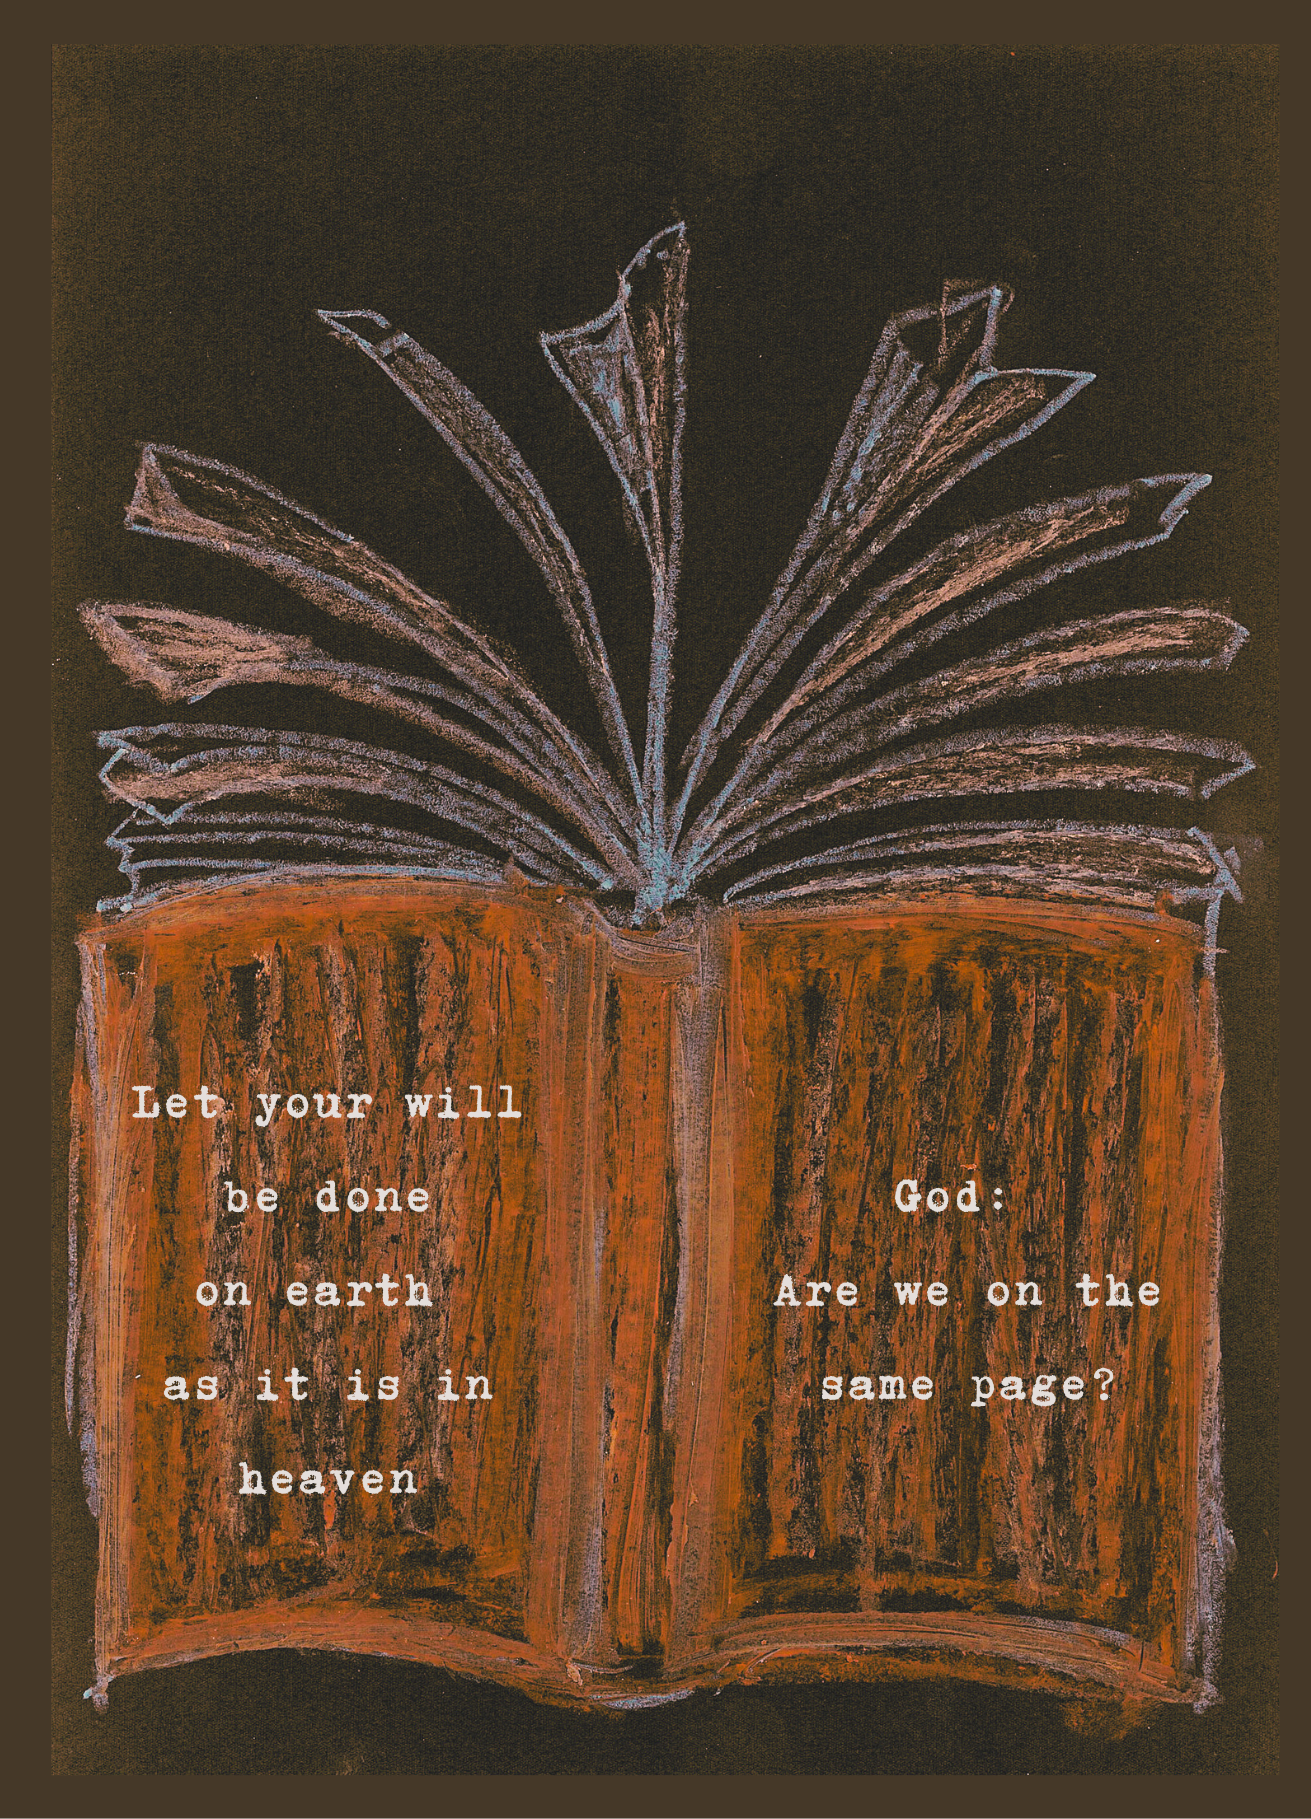 Let your will
be done
on earth
as it is in
heaven
God:
Are we on the
same page?